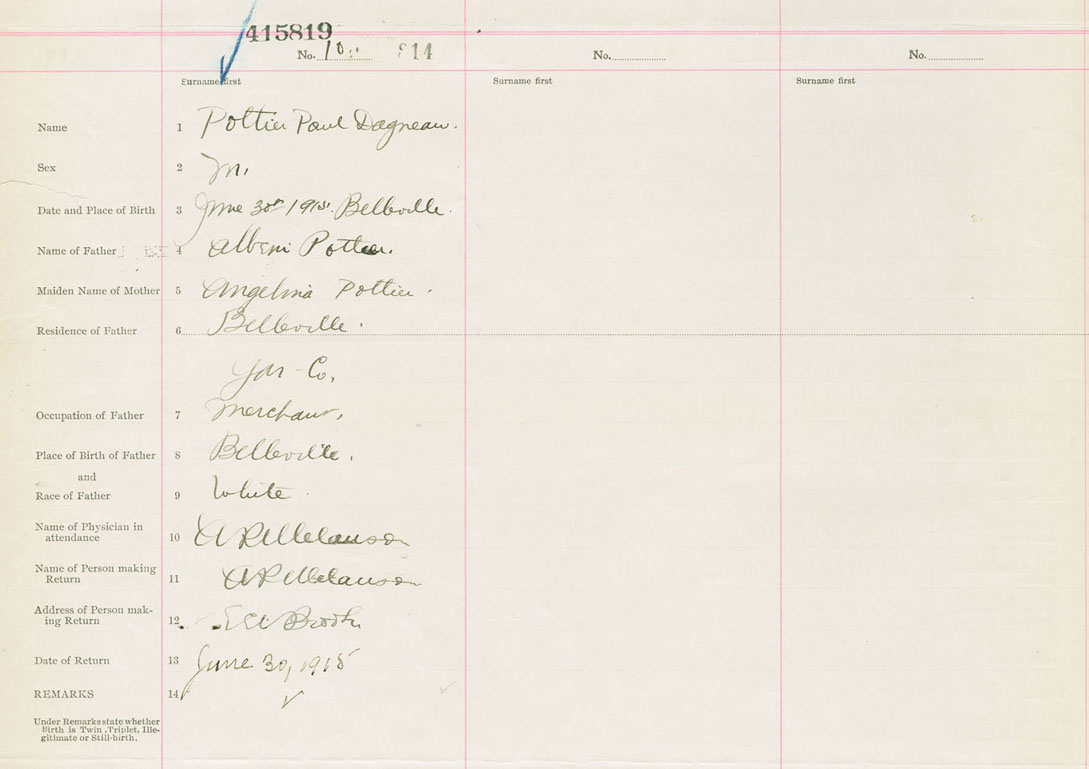 415819
No. 10 814 No. No.
Surname first Surname first Surname first
Name 1 Pottier Paul Dagneau.
Sex 2 M.
Date and Place of Birth 3 June 30th 1915. Belleville.
Name of Father 4 Alberni Pottier.
Maiden Name of Mother 5 Angelina Pottier.
Residence of Father 6 Belleville.
Yar Co.
Occupation of Father 7 Merchant.
Place of Birth of Father 8 Belleville.
and
Race of Father 9 White.
Name of Physician in
attendance 10 A R Melanson
Name of Person making
Return 11 A R Melanson
Address of Person mak-
ing Return 12 Eel Brook
Date of Return 13 June 30, 1915
REMARKS 14
Under Remarks state whether
Birth is Twin, Triplet, Ille-
gitimate or Still-birth.